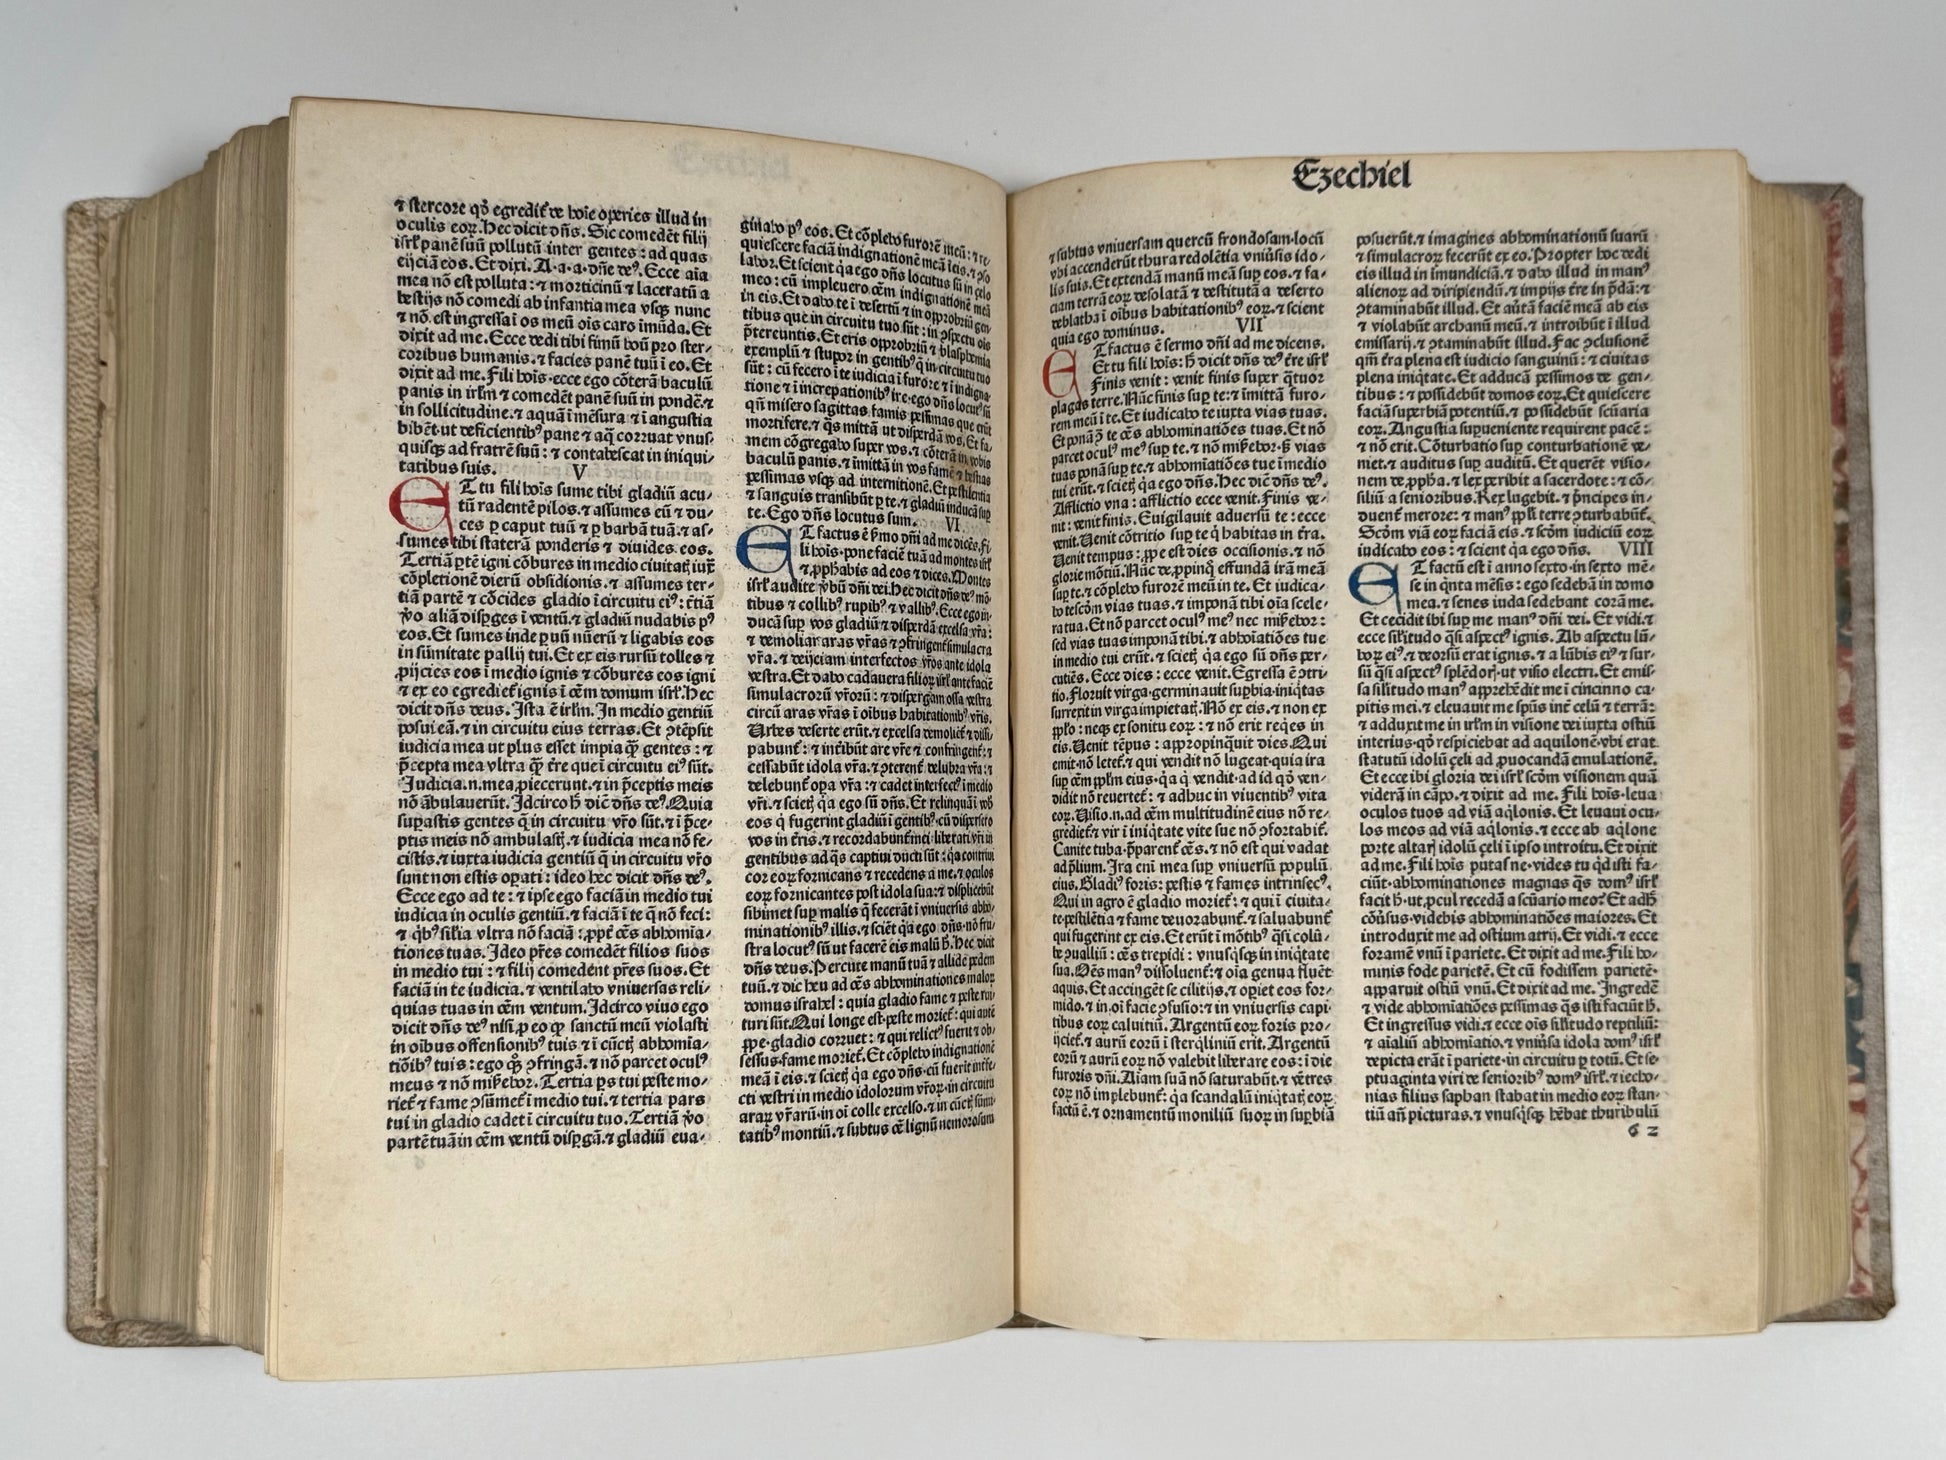 ⁊ stercore qḋ egredit̄ de hoie operies illud in
oculis eoꝝ. Hec dicit dn̄s. Sic comedēt filij
isrl̄ panē suū pollutū inter gentes : ad quas
eijciā eos. Et dixi. A·a·a·dn̄e deꝰ. Ecce aīa
mea nō est polluta : ⁊ morticinū ⁊ laceratū a
bestijs nō comedi ab infantia mea vsqꝫ nunc
⁊ nō est ingressa ī os meū ois caro īmūda. Et
dixit ad me. Ecce dedi tibi fimū boū pro ster-
coribus humanis.⁊ facies panē tuū ī eo. Et
dixit ad me. Fili hoīs·ecce ego cōterā baculū
panis in irl̄m ⁊ comedēt panē suū in pondē.⁊
in sollicitudine.⁊ aquā ī mēsura ⁊ ī angustia
bibēt·ut deficientibꝰ pane ⁊ aq̄ corruat vnus-
quisqꝫ ad fratrē suū : ⁊ contabescat in iniqui-
tatibus suis. V
ET tu fili hoīs sume tibi gladiū acu-
tū radentē pilos.⁊ assumes eū ⁊ du-
ces ꝑ caput tuū ⁊ ꝑ barbā tuā.⁊ as-
sumes tibi staterā ponderis ⁊ diuides eos.
Tertiā ꝑtē igni cōbures in medio ciuitat̄ iux̄
cōpletionē dierū obsidionis.⁊ assumes ter-
tiā partē ⁊ cōcides gladio ī circuitu eiꝰ : t̄tiā
v̊o aliā disꝑges ī ventū.⁊ gladiū nudabis pꝰ
eos. Et sumes inde ꝑuū nūerū ⁊ ligabis eos
in sūmitate pallij tui. Et ex eis rursū tolles ⁊
ꝓijcies eos ī medio ignis ⁊ cōbures eos igni
⁊ ex eo egrediet̄ ignis ī oēm domum isrl̄. Hec
dicit dn̄s deus. Ista ē irl̄m. In medio gentiū
posui eā.⁊ in circuitu eius terras. Et ꝯtēpsit
iudicia mea ut plus esset impia qꝫ̄ gentes : ⁊
p̄cepta mea vltra qꝫ̄ t̄re que ī circuitu eiꝰ sūt.
Iudicia.n.mea ꝓiecerunt.⁊ in p̄ceptis meis
nō ābulauerūt. Idcirco h̄ dic̄ dn̄s deꝰ. Quia
suꝑastis gentes q̄ in circuitu vr̄o sūt.⁊ ī p̄ce-
ptis meis nō ambulastꝭ.⁊ iudicia mea nō fe-
cistis.⁊ iuxta iudicia gentiū q̄ in circuitu vr̄o
sunt non estis oꝑati : ideo hec dicit dn̄s deꝰ.
Ecce ego ad te : ⁊ ipse ego faciā in medio tui
iudicia in oculis gentiū.⁊ faciā ī te q̄ nō feci :
⁊ q̄bꝰ sil̄ia vltra nō faciā : ꝓpt̄ oēs abhomīa-
tiones tuas. Ideo pr̄es comedēt filios suos
in medio tui : ⁊ filij comedent pr̄es suos. Et
faciā in te iudicia.⁊ ventilabo vniuersas reli-
quias tuas in oēm ventum. Idcirco viuo ego
dicit dn̄s deꝰ nisi ꝓ eo qꝙ sanctū meū violasti
in oībus offensionibꝰ tuis ⁊ ī cūctꝭ abhomīa-
tiōibꝰ tuis : ego qꝫ̊ ꝯfringā.⁊ nō parcet oculꝰ
meus ⁊ nō mis̄ebor. Tertia ꝑs tui peste mo-
riet̄ ⁊ fame ꝯsūmet̄ ī medio tui.⁊ tertia pars
tui in gladio cadet ī circuitu tuo. Tertiā v̊o
partē tuā in oēm ventū disꝑgā.⁊ gladiū eua-
ginabo pꝰ eos. Et cōplebo furorē meū : ⁊ re-
quiescere faciā indignationē meā ī eis.⁊ ꝯso
labor. Et scient q̇a ego dn̄s locutus sū in zelo
meo : cū impleuero oēm indignationē meā
in eis. Et dabo te ī desertū ⁊ in opprobriū gen
tibus que in circuitu tuo sūt : in ꝯspectu ois
p̄tereuntis. Et eris opprobriū ⁊ blasphemia
exemplū ⁊ stupor in gentibꝰ q̄ in circuitu tuo
sūt : cū fecero ī te iudicia ī furore ⁊ ī indigna-
tione ⁊ ī increpationibꝰ ire·ego dn̄s locutꝰ sū
qn̄ misero sagittas famis pessimas que erūt
mortifere.⁊ q̄s mittā ut disperdā vos. Et fa-
mem cōgregabo super vos.⁊ cōterā in vobis
baculū panis.⁊ īmittā in vos famē ⁊ bestias
pessimas vsqꝫ ad internitionē. Et pestilentia
⁊ sanguis transibūt ꝑ te.⁊ gladiū inducā suꝑ
te. Ego dn̄s locutus sum. VI
ET factus ē s̄mo dn̄i ad me dicēs. Fi-
li hoīs·pone faciē tuā ad montes isrl̄
⁊ ꝓph̄abis ad eos ⁊ dices. Montes
isrl̄ audite v̄bū dn̄i dei. Hec dicit dn̄s deꝰ mō-
tibus ⁊ collibꝰ rupibꝰ ⁊ vallibꝰ. Ecce ego in-
ducā suꝑ vos gladiū ⁊ disperdā excelsa vr̄a :
⁊ demoliar aras vr̄as ⁊ ꝯfringent̄ simulacra
vr̄a.⁊ deijciam interfectos vr̄os ante idola
vestra. Et dabo cadauera filioꝝ isrl̄ ante faciē
simulacrorū vr̄orū : ⁊ dispergam ossa vestra
circū aras vr̄as ī oībus habitationibꝰ vr̄is.
Urbes deserte erūt.⁊ excelsa demolient̄ ⁊ dissi-
pabunt̄ : ⁊ int̄ibūt are vr̄e ⁊ confringent̄ : ⁊
cessabūt idola vr̄a.⁊ ꝯterent̄ delubra vr̄a : ⁊
delebunt̄ oꝑa vr̄a : ⁊ cadet interfectꝰ ī medio
vr̄i.⁊ scietꝭ q̇a ego sū dn̄s. Et relinquā ī vob̄
eos q̇ fugerint gladiū ī gētibꝰ·cū dispersero
vos in t̄ris.⁊ recordabunt̄ mei liberati vr̄i in
gentibus ad q̄s captiui ducti sūt : q̇a contriui
cor eoꝝ fornicans ⁊ recedens a me.⁊ oculos
eoꝝ fornicantes post idola sua : ⁊ displicebūt
sibimet suꝑ malis q̄ fecerāt ī vniuersis abho-
minationibꝰ illis.⁊ sciēt q̇a ego dn̄s·nō fru-
stra locutꝰ sū ut facerē eis malū h̄. Hec dicit
dn̄s deus. Percute manū tuā ⁊ allide pedem
tuū.⁊ dic heu ad oēs abhominationes maloꝝ
domus israhel : quia gladio fame ⁊ peste rui-
turi sūt. Qui longe est·peste moriet̄ : qui autē
ꝓpe·gladio corruet : ⁊ qui relictꝰ fuerit ⁊ ob-
sessus·fame moriet̄. Et cōplebo indignationē
meā ī eis.⁊ scietꝭ q̇a ego dn̄s·cū fuerīt inte-
cti vestri in medio idolorum vr̄oꝝ·in circuitu
araꝝ vr̄arū·in oī colle excelso.⁊ in cūctꝭ sūmi-
tatibꝰ montiū.⁊ subtus oē lignū nemorosum
Ezechiel
⁊ subtus vniuersam quercū frondosam·locū
vbi accenderūt thura redolētia vniūsis ido-
lis suis. Et extendā manū meā suꝑ eos.⁊ fa-
ciam terrā eoꝝ desolatā ⁊ destitutā a deserto
deblatha ī oibus habitationibꝰ eoꝝ.⁊ scient
quia ego dominus. VII
ET factus ē sermo dn̄i ad me dicens.
Et tu fili hoīs : h̄ dicit dn̄s deꝰ t̄re isrl̄
Finis venit : venit finis super q̄tuor
plagas terre. Nūc finis suꝑ te : ⁊ īmittā furo-
rem meū ī te. Et iudicabo te iuxta vias tuas.
Et ponā ꝯ̄ te oēs abhominatiōes tuas. Et nō
parcet oculꝰ meꝰ suꝑ te.⁊ nō mis̄ebor·sꝫ vias
tuas ponā suꝑ te.⁊ abhomīatiōes tue ī medio
tui erūt.⁊ scietꝭ q̇a ego dn̄s. Hec dic̄ dn̄s deꝰ.
Afflictio vna : afflictio ecce venit. Finis ve-
nit : venit finis. Euigilauit aduersū te : ecce
venit. Uenit cōtritio suꝑ te q̇ habitas in t̄ra.
Uenit tempus : ꝓpe est dies occisionis.⁊ nō
glorie mōtiū. Nūc de ꝓpinq̊ effundā irā meā
suꝑ te.⁊ cōplebo furorē meū in te. Et iudica-
bo te scōm vias tuas.⁊ imponā tibi oīa scele-
ra tua. Et nō parcet oculꝰ meꝰ nec mis̄ebor :
sed vias tuas imponā tibi.⁊ abhoīatiōes tue
in medio tui erūt.⁊ scietꝭ q̇a ego sū dn̄s per-
cutiēs. Ecce dies : ecce venit. Egressa ē ꝯtri-
tio. Floruit virga·germinauit suꝑbia·iniq̇tas
surrexit in virga impietatꝭ. Nō ex eis.⁊ non ex
ppl̄o : neqꝫ ex sonitu eoꝝ : ⁊ nō erit req̇es in
eis. Uenit tēpus : appropinq̊uit dies. Qui
emit·nō letet̄.⁊ qui vendit nō lugeat·quia ira
suꝑ oēm ppl̄m eius·q̇a q̇ vendit·ad id qḋ ven-
didit nō reuertet̄ : ⁊ adhuc in viuentibꝰ vita
eoꝝ. Uisio.n.ad oēm multitudinē eius nō re-
grediet̄·⁊ vir ī iniq̇tate vite sue nō ꝯfortabit̄.
Canite tuba·p̄parent̄ oēs.⁊ nō est qui vadat
ad p̄lium. Ira eni mea suꝑ vniuersū populū
eius. Gladiꝰ foris : pestis ⁊ fames intrinsecꝰ.
Qui in agro ē gladio moriet̄ : ⁊ qui ī ciuita-
te·pestilētia ⁊ fame deuorabunt̄.⁊ saluabunt̄
qui fugerint ex eis. Et erūt ī mōtibꝰ q̇si colū-
be ꝯualliū : oēs trepidi : vnusq̇sqꝫ in iniq̇tate
sua. Oēs manꝰ dissoluent̄ : ⁊ oīa genua fluēt
aquis. Et accingēt se cilitijs.⁊ oꝑiet eos for-
mido.⁊ in oi facie ꝯfusio : ⁊ in vniuersis capi-
tibus eoꝝ caluitiū. Argentū eoꝝ foris pro-
ijciet̄.⁊ aurū eorū ī sterq̇liniū erit. Argentū
eorū ⁊ aurū eoꝝ nō valebit liberare eos : ī die
furoris dn̄i. Aīam suā nō saturabūt.⁊ vētres
eoꝝ nō implebunt̄ : q̇a scandalū iniq̇tatꝭ eoꝝ
factū ē.⁊ ornamentū moniliū suoꝝ in suꝑbiā
posuerūt.⁊ imagines abhominationū suarū
⁊ simulacroꝝ fecerūt ex eo. Propter hoc dedi
eis illud in īmundiciā.⁊ dabo illud in manꝰ
alienoꝝ ad diripiendū.⁊ impijs t̄re in p̄dā : ⁊
ꝯtaminabūt illud. Et au̇tā faciē meā ab eis
⁊ violabūt archanū meū.⁊ introibūt ī illud
emissarij.⁊ ꝯtaminabūt illud. Fac ꝯclusionē
qm̄ t̄ra plena est iudicio sanguinū : ⁊ ciuitas
plena iniq̇tate. Et adducā pessimos de gen-
tibus : ⁊ possidebūt domos eoꝝ. Et quiescere
faciā superbiā potentiū.⁊ possidebūt scūaria
eoꝝ. Angustia suꝑueniente requirent pacē :
⁊ nō erit. Cōturbatio suꝑ conturbationē ve-
niet.⁊ auditus suꝑ auditū. Et querēt visio-
nem de ꝓph̄a.⁊ lex peribit a sacerdote : ⁊ cō-
siliū a senioribus. Rex lugebit.⁊ p̄nceps in-
duent̄ merore : ⁊ manꝰ ppl̄i terre ꝯturbabūt̄.
Scōm viā eoꝝ faciā eis.⁊ scōm iudiciū eoꝝ
iudicabo eos : ⁊ scient q̇a ego dn̄s. VIII
ET factū est ī anno sexto·in sexto mē-
se in q̇nta mēsis : ego sedebā in domo
mea.⁊ senes iuda sedebant corā me.
Et cecidit ibi suꝑ me manꝰ dn̄i dei. Et vidi.⁊
ecce sil̄itudo q̇si aspectꝰ ignis. Ab aspectu lū-
boꝝ eiꝰ.⁊ deorsū erat ignis.⁊ a lūbis eiꝰ ⁊ sur-
sū q̇si aspectꝰ splēdorꝭ·ut visio electri. Et emis-
sa sil̄itudo manꝰ appreh̄edit me ī cincinno ca-
pitis mei.⁊ eleuauit me spūs int̄ celū ⁊ terrā :
⁊ adduxit me in irl̄m in visione dei iuxta ostiū
interius·qḋ respiciebat ad aquilonē·vbi erat
statutū idolū zeli ad ꝓuocandā emulationē.
Et ecce ibi gloria dei isrl̄ scōm visionem quā
viderā in cāpo.⁊ dixit ad me. Fili hoīs·leua
oculos tuos ad viā aq̇lonis. Et leuaui ocu-
los meos ad viā aq̇lonis.⁊ ecce ab aq̇lone
porte altarꝭ idolū zeli ī ipso introitu. Et dixit
ad me. Fili hoīs putasne·vides tu qḋ isti fa-
ciūt·abhominationes magnas q̄s domꝰ isrl̄
facit h̄·ut ꝓcul recedā a scūario meo? Et adh̊
cōūsus·videbis abhominatiōes maiores. Et
introduxit me ad ostium atrij. Et vidi.⁊ ecce
foramē vnū ī pariete. Et dixit ad me. Fili ho-
minis fode parietē. Et cū fodissem parietē·
apparuit ostiū vnū. Et dixit ad me. Ingredē
⁊ vide abhomīatiōes pessimas q̄s isti faciūt h̄.
Et ingressus vidi.⁊ ecce ois sil̄itudo reptiliū :
⁊ aīaliū abhomīatio.⁊ vniūsa idola domꝰ isrl̄
depicta erāt ī pariete·in circuitu ꝑ totū. Et se-
ptuaginta viri de senioribꝰ domꝰ isrl̄.⁊ iecho-
nias filius saphan stabat in medio eoꝝ stan-
tiū an̄ picturas.⁊ vnusq̇sqꝫ h̄ebat thuribulū
6 2